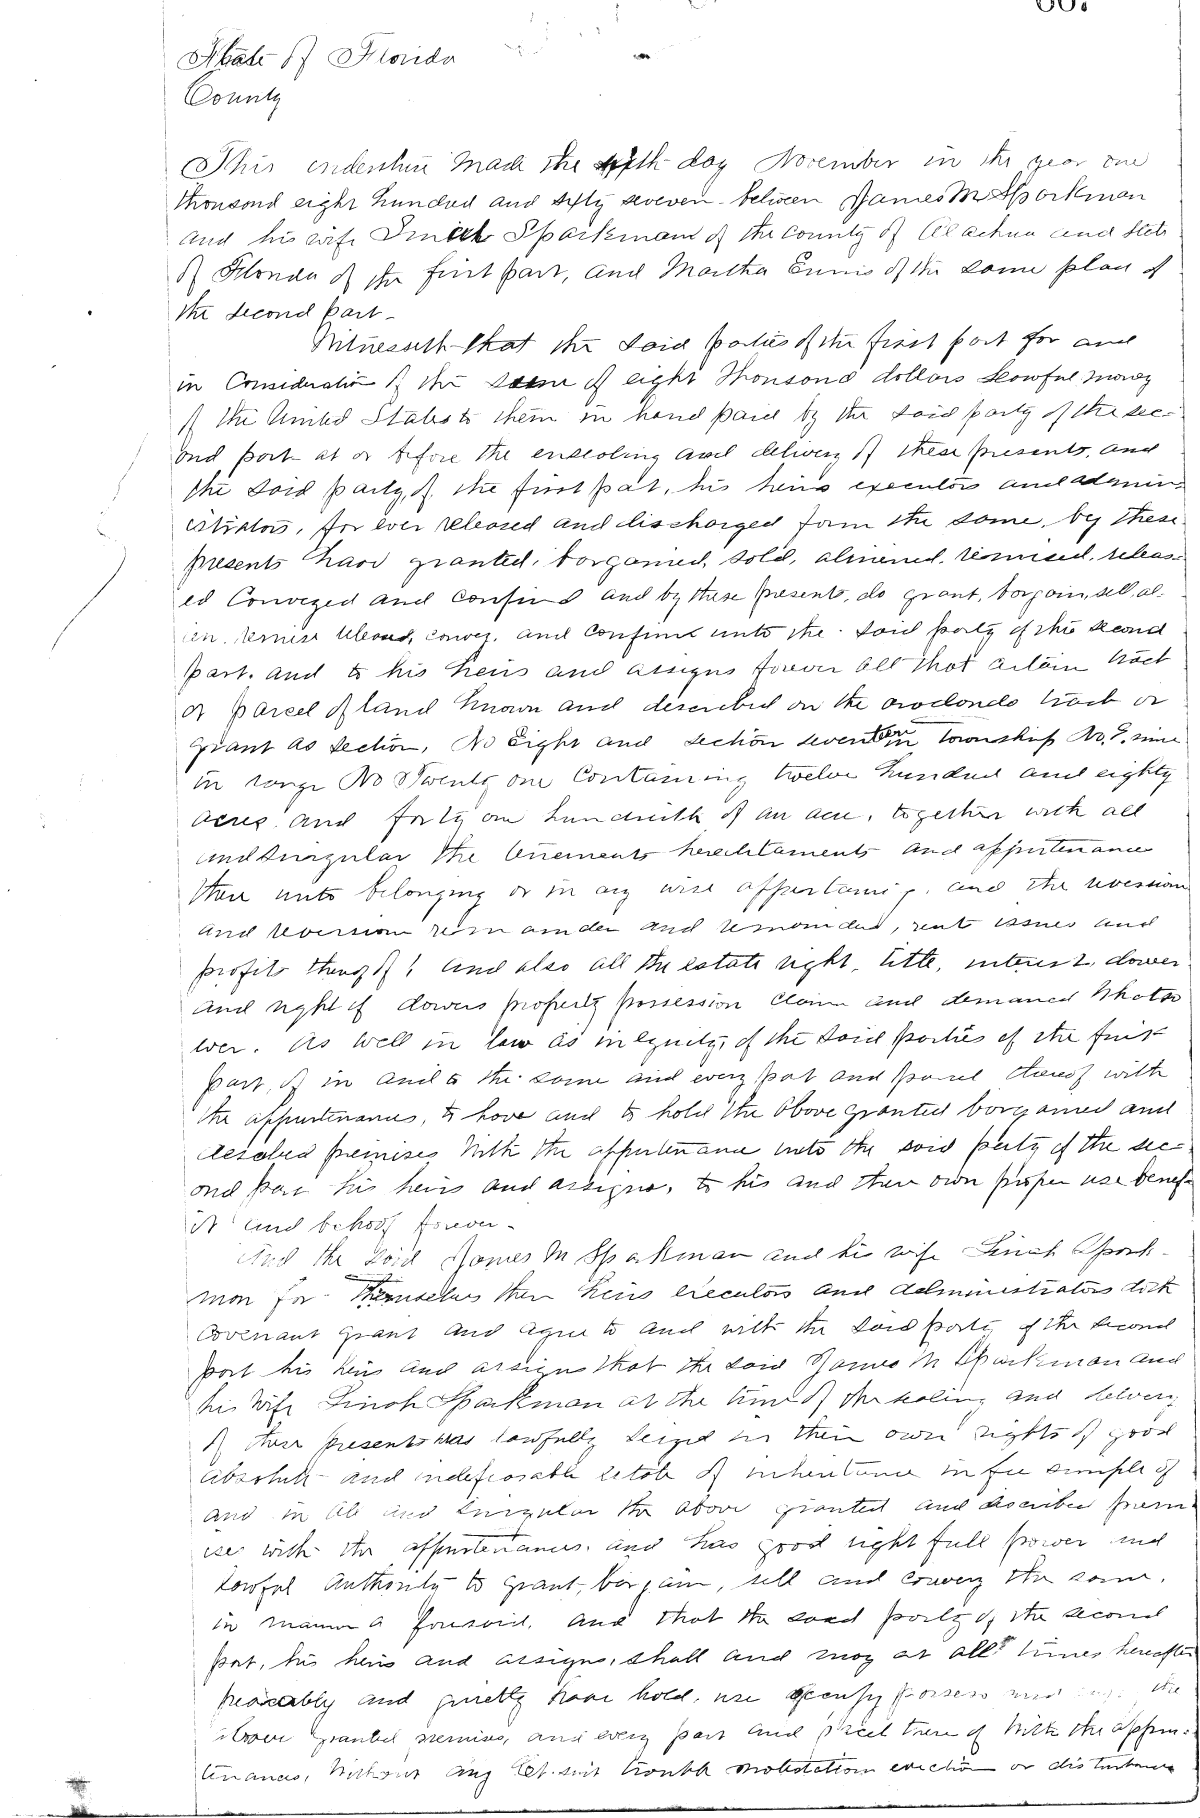 State of Florida
County
This endenture made the day November in the year one
thousond eight hundred and sixty seveven between James M Sparkman
and his wife Sparkman of the county of Alachua and State
of Florida of the first part, and Martha Ennis of the same place of
the second part-
Witnesseth that the said parties of the first part for and
in Consideration of the sum of eight thousond dollars Lawful money
of the United States to them in hand paid by the said party of the sec-
ond part at or before the ensealing and delivery of these presents, and
the said party, of the first pat, his heirs executors and admin-
istrators, for ever released and discharged form the same, by these
presents have granted, borgained, sold, aliened, remised, releas-
ed Conveyed and confirmd and by these presents, do grant, borgoin, sell al-
ien, remise release, convey, and confirm unto the said party of the second
part. and to his heirs and assigns forever all that certain tract
or parcel of land known and described on the arodondo tract or
grant as section, No Eight and section seventeen township No. 9. nine
in range No Twenty one Containing twelve hundred and eighty
acres and forty one hundredth of an acre, together with all
and singular the tenements hereditaments and appurtenances
there unto belonging or in any wise appertaining, and the reversion
and reversion remainder and remainders, rent issues and
profits thereof, and also all the estate right, title, interest, dower
and right of dowers property possession claim and demaned whatso
ever. As well in law as in equity, of the said parties of the first
part, of in and to the same and every part and parcel thereof with
the appurtenances, to have and to hold the above granted borgained and
described premises With the appurtenance unto the said party of the sec-
ond part his heirs and assigns, to his and there own proper use benef-
it and behoof forever-
And the said James M Sparkman and his wife Sinah Spark-
man for themselves there heirs executors and administrators doth
covenant grant and agree to and with the said party of the second
part his heirs and assigns that the said James M Sparkman and
his wife Sinah Sparkman at the time of the sealing and delivery
of these presents was lawfully seized in their own rights of good
absolute and indefeasable estate of inheritance in fee simple of
and in all and singular the above granted and described prem-
ises with the appurtenances, and has good right full power and
lawful authority to grant, bargain, sell and convey the same.
in manner a foresaid. and that the said party of the second
part, his heirs and assigns, shall and may at all times hereafter
peaceably and quietly have hold, use occupy possess and the
above granted premises, and every part and parcel there of With the appur-
tenances, Without any let. suit trouble molestation eviction or disturbance